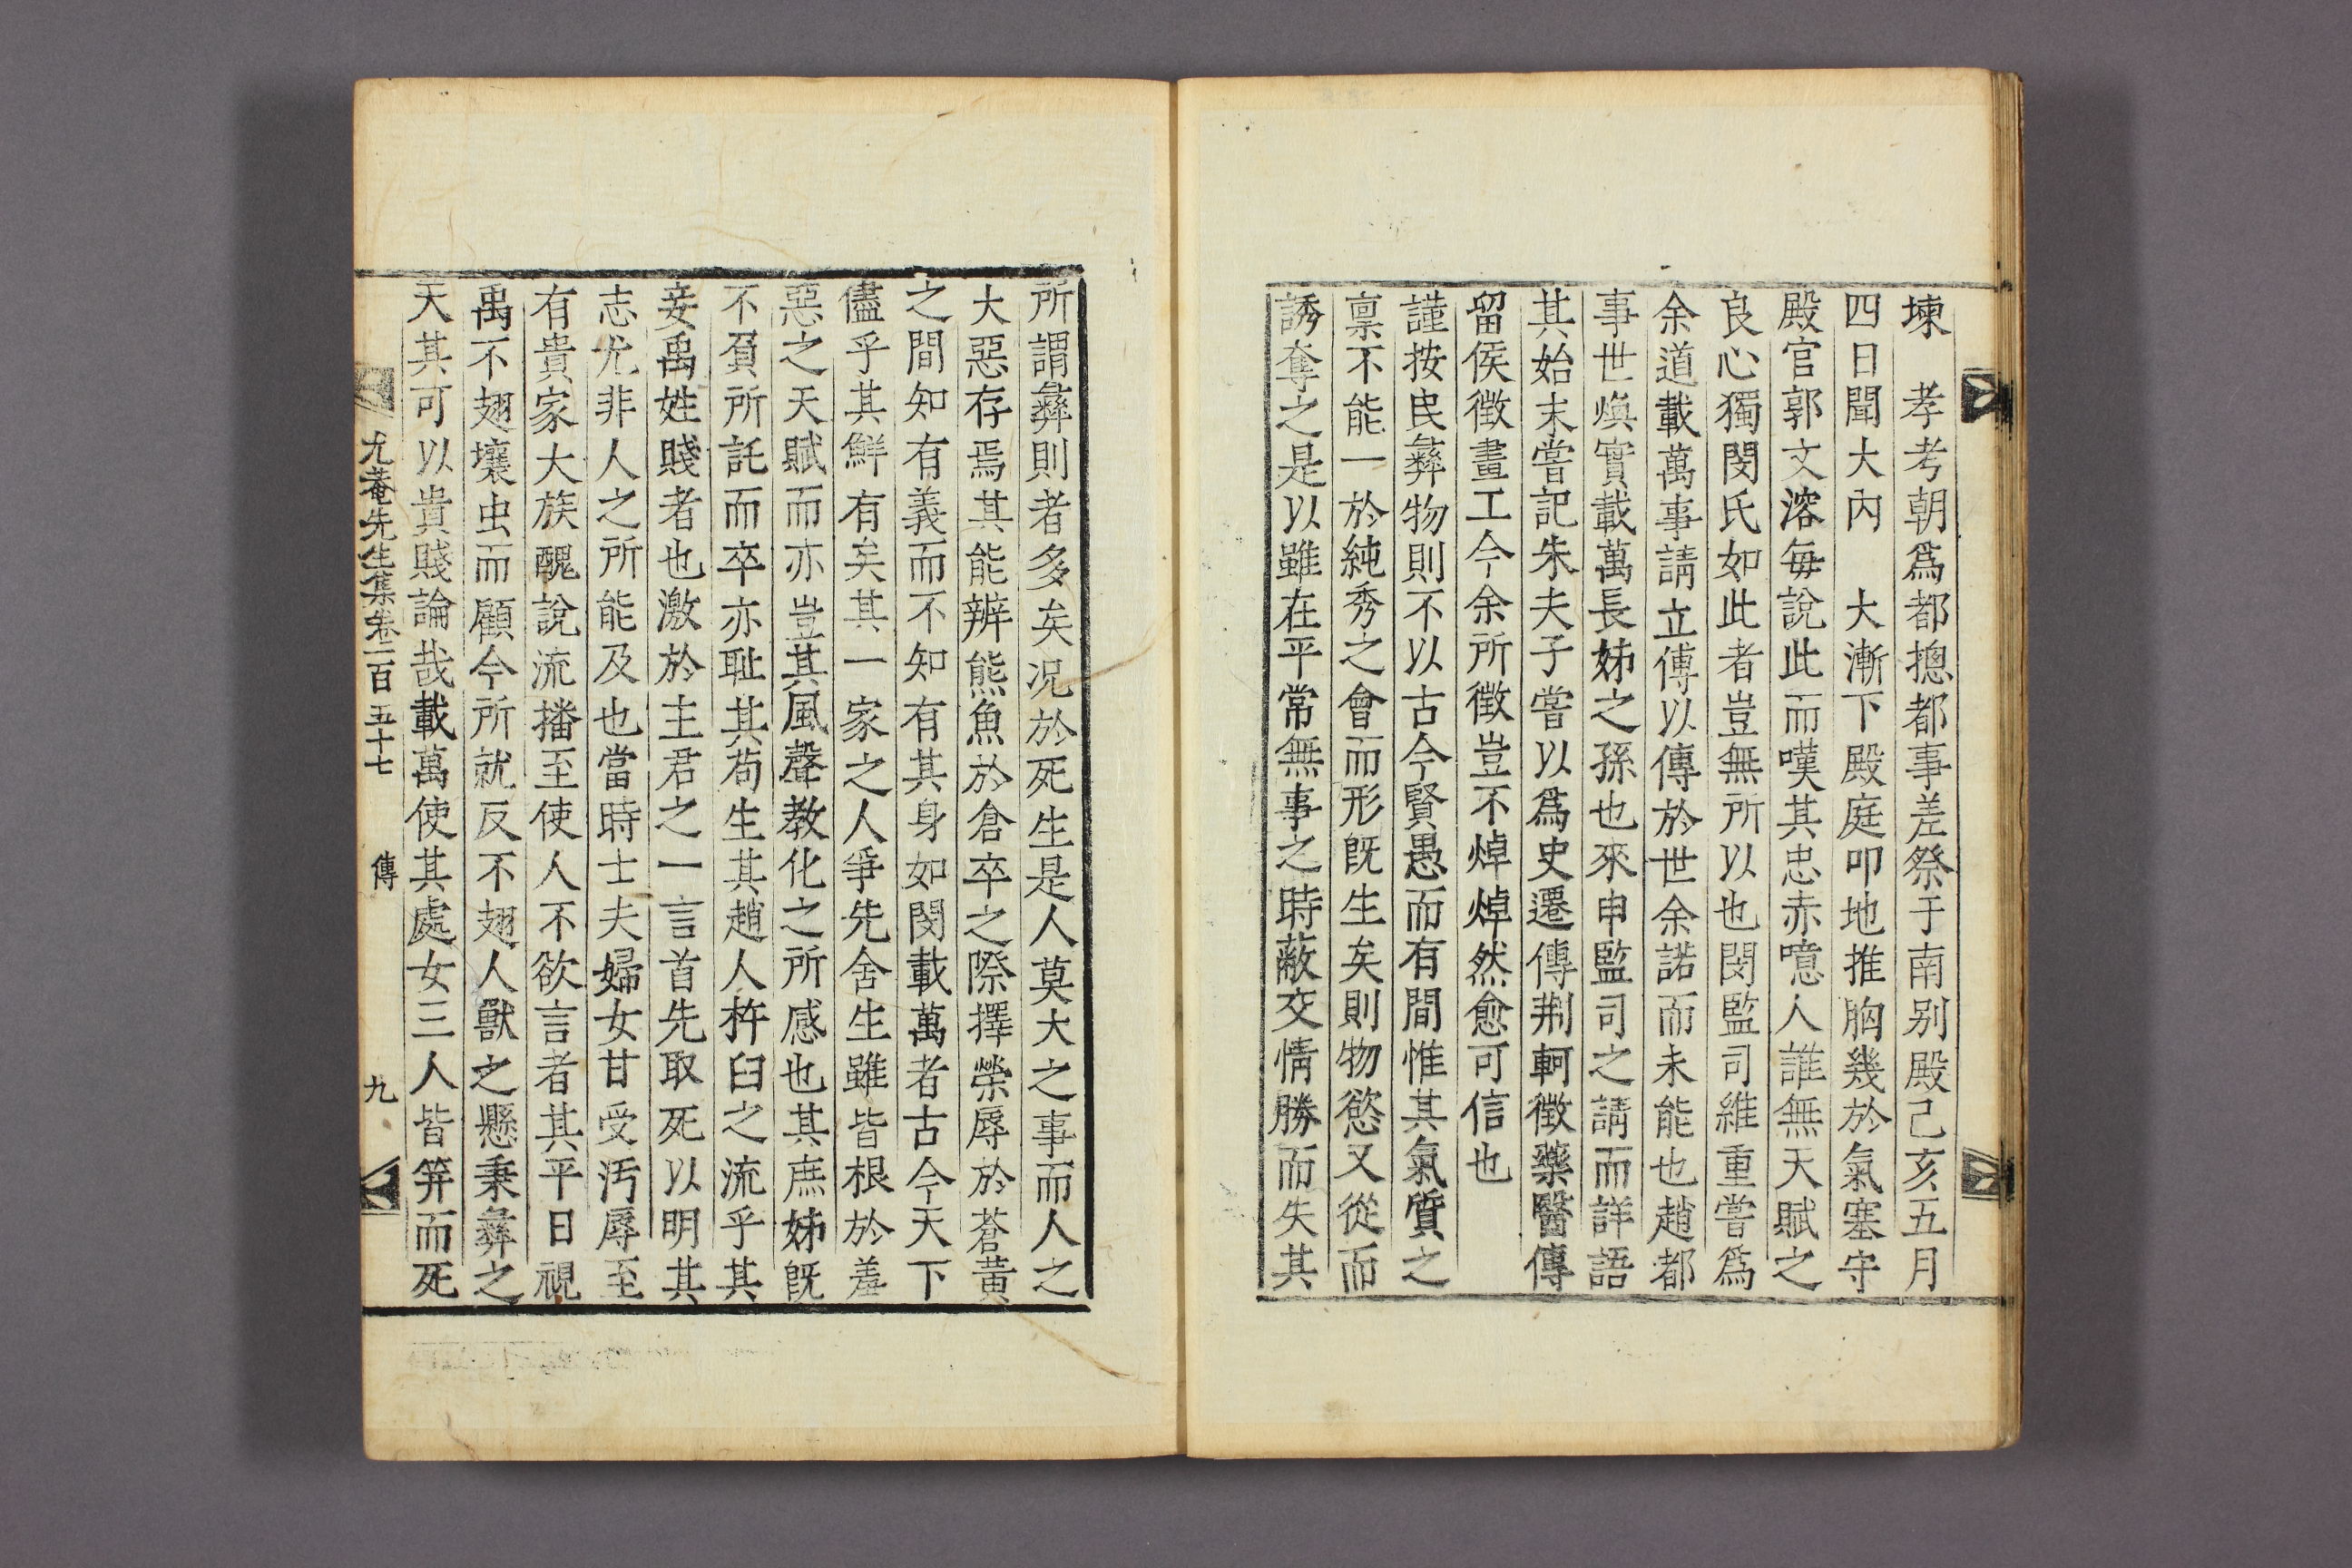 堜　孝考朝爲都摠都事差祭于南别殿己亥五月
四日聞大內　大漸下殿庭叩地推胸幾於氣塞守
殿官郭文溶每說此而嘆其忠赤噫人誰無天賦之
良心獨閔氏如此者豈無所以也閔監司維重嘗爲
余道載萬事請立傳以傳於世余諾而未能也趙都
事世煥實載萬長姊之孫也來申監司之請而詳語
其始末嘗記朱夫子嘗以爲史遷傳荊軻徵藥醫傳
留侯徵畫工今余所徵豈不焯焯然愈可信也
謹按民彝物則不以古今賢愚而有間惟其氣質之
禀不能一於純秀之會而形旣生矣則物慾又從而
誘奪之是以雖在平常無事之時蔽交情勝而失其
所謂彝則者多矣况於死生是人莫大之事而人之
大惡存焉其能辨熊魚於倉卒之際擇榮辱於蒼黄
之間知有義而不知有其身如閔載萬者古今天下
儘乎其鮮有矣其一家之人爭先舍生雖皆根於羞
惡之天賦而亦豈其風聲教化之所感也其庶姊旣
不負所託而卒亦耻其苟生其趙人杵臼之流乎其
妾禹姓賤者也激於主君之一言首先取死以明其
志尤非人之所能及也當時士夫婦女甘受汚辱至
有貴家大族醜說流播至使人不欲言者其平日視
禹不翅壤虫而顧今所就反不翅人獸之懸秉彝之
天其可以貴賤論哉載萬使其處女三人皆笄而死
尤菴先生集卷一百五十七　傳　九